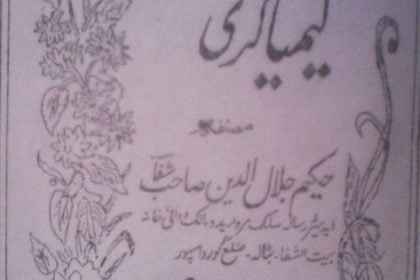 کیمیاگری
مصنفہ
حکیم جلال الدین صاحب شفا
ایڈیٹر رسالہ سلک مروارید و مالک دوائی خانہ
بیت الشفا۔ بٹالہ۔ ضلع گورداسپور